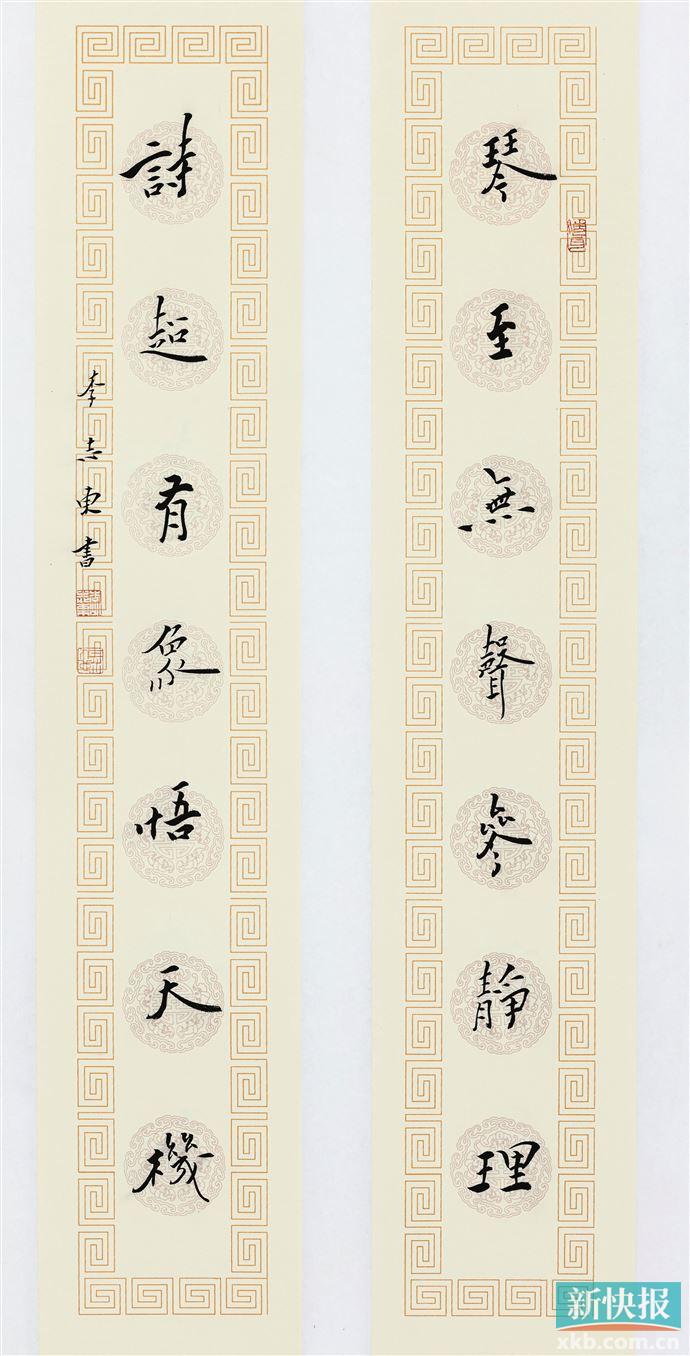 琴至無聲參靜理
詩超有象悟天機
李志東書
新快报
xkb.com.cn